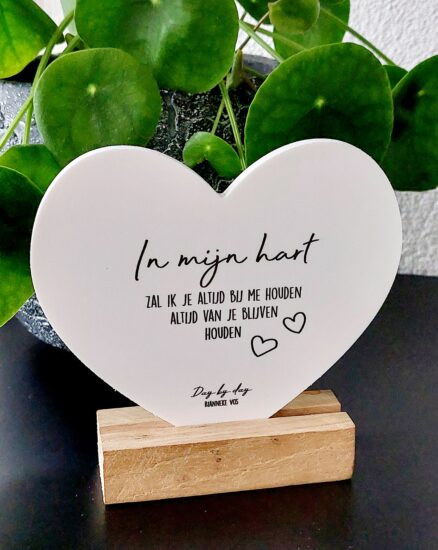 In mijn hart
ZAL IK JE ALTIJD BIJ ME HOUDEN
ALTIJD VAN JE BLIJVEN
HOUDEN
Day by day
RIANNEKE VOS